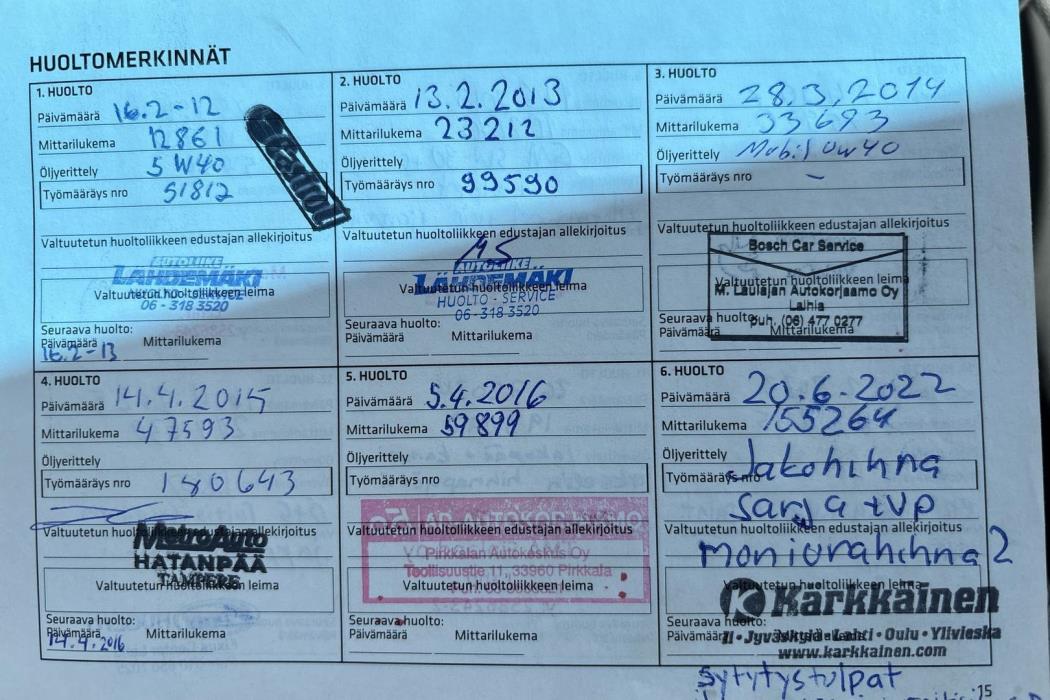 HUOLTOMERKINNÄT
1. HUOLTO
Päivämäärä 16.2-12
Mittarilukema 12861
Öljyerittely 5 W40
Työmääräys nro 51812
Castrol
Valtuutetun huoltoliikkeen edustajan allekirjoitus
AUTOLIIKE
LÄHDEMÄKI
Valtuutetun huoltoliikkeen leima
06 - 318 3520
Seuraava huolto:
Päivämäärä Mittarilukema
16.2-13
2. HUOLTO
Päivämäärä 13.2.2013
Mittarilukema 23212
Öljyerittely
Työmääräys nro 99590
Valtuutetun huoltoliikkeen edustajan allekirjoitus
AUTOLIIKE
LÄHDEMÄKI
Valtuutetun huoltoliikkeen leima
HUOLTO - SERVICE
06 - 318 3520
Seuraava huolto:
Päivämäärä Mittarilukema
3. HUOLTO
Päivämäärä 28.3.2014
Mittarilukema 33693
Öljyerittely Mobil 0w40
Työmääräys nro -
Valtuutetun huoltoliikkeen edustajan allekirjoitus
Bosch Car Service
Valtuutetun huoltoliikkeen leima
M. Laulajan Autokorjaamo Oy
Laihia
puh. (06) 477 0277
Seuraava huolto:
Päivämäärä Mittarilukema
4. HUOLTO
Päivämäärä 14.4.2015
Mittarilukema 47593
Öljyerittely
Työmääräys nro 180643
Valtuutetun huoltoliikkeen edustajan allekirjoitus
MetroAuto
HATANPÄÄ
TAMPERE
Valtuutetun huoltoliikkeen leima
Seuraava huolto:
Päivämäärä Mittarilukema
14.4.2016
5. HUOLTO
Päivämäärä 5.4.2016
Mittarilukema 59899
Öljyerittely
Työmääräys nro
Valtuutetun huoltoliikkeen edustajan allekirjoitus
Pirkkalan Autokeskus Oy
Teollisuustie 11, 33960 Pirkkala
Valtuutetun huoltoliikkeen leima
Seuraava huolto:
Päivämäärä Mittarilukema
6. HUOLTO
Päivämäärä 20.6.2022
Mittarilukema 155264
Öljyerittely
Työmääräys nro Jakohihna
sarja tvp
Valtuutetun huoltoliikkeen edustajan allekirjoitus
moniurahihna 2
Valtuutetun huoltoliikkeen leima
Kärkkäinen
Seuraava huolto:
Päivämäärä Mittarilukema
Ii • Jyväskylä • Lahti • Oulu • Ylivieska
www.karkkainen.com
sytytystulpat
15